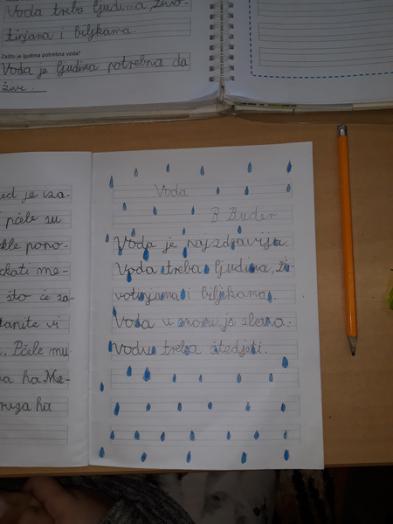 Voda treba ljudima, živo-
tinjama i biljkama.
Zašto je ljudima potrebna voda?
Voda je ljudima potrebna da
žive.
ed je iza-
pčele su
pono-
me-
što će za-
tanite vi
Pčele mu
ha Me-
ha
Voda
Voda je najzdravija.
Voda treba ljudima, ži-
votinjama i biljkama.
Voda u moru je slana.
Vodu treba štedjeti.